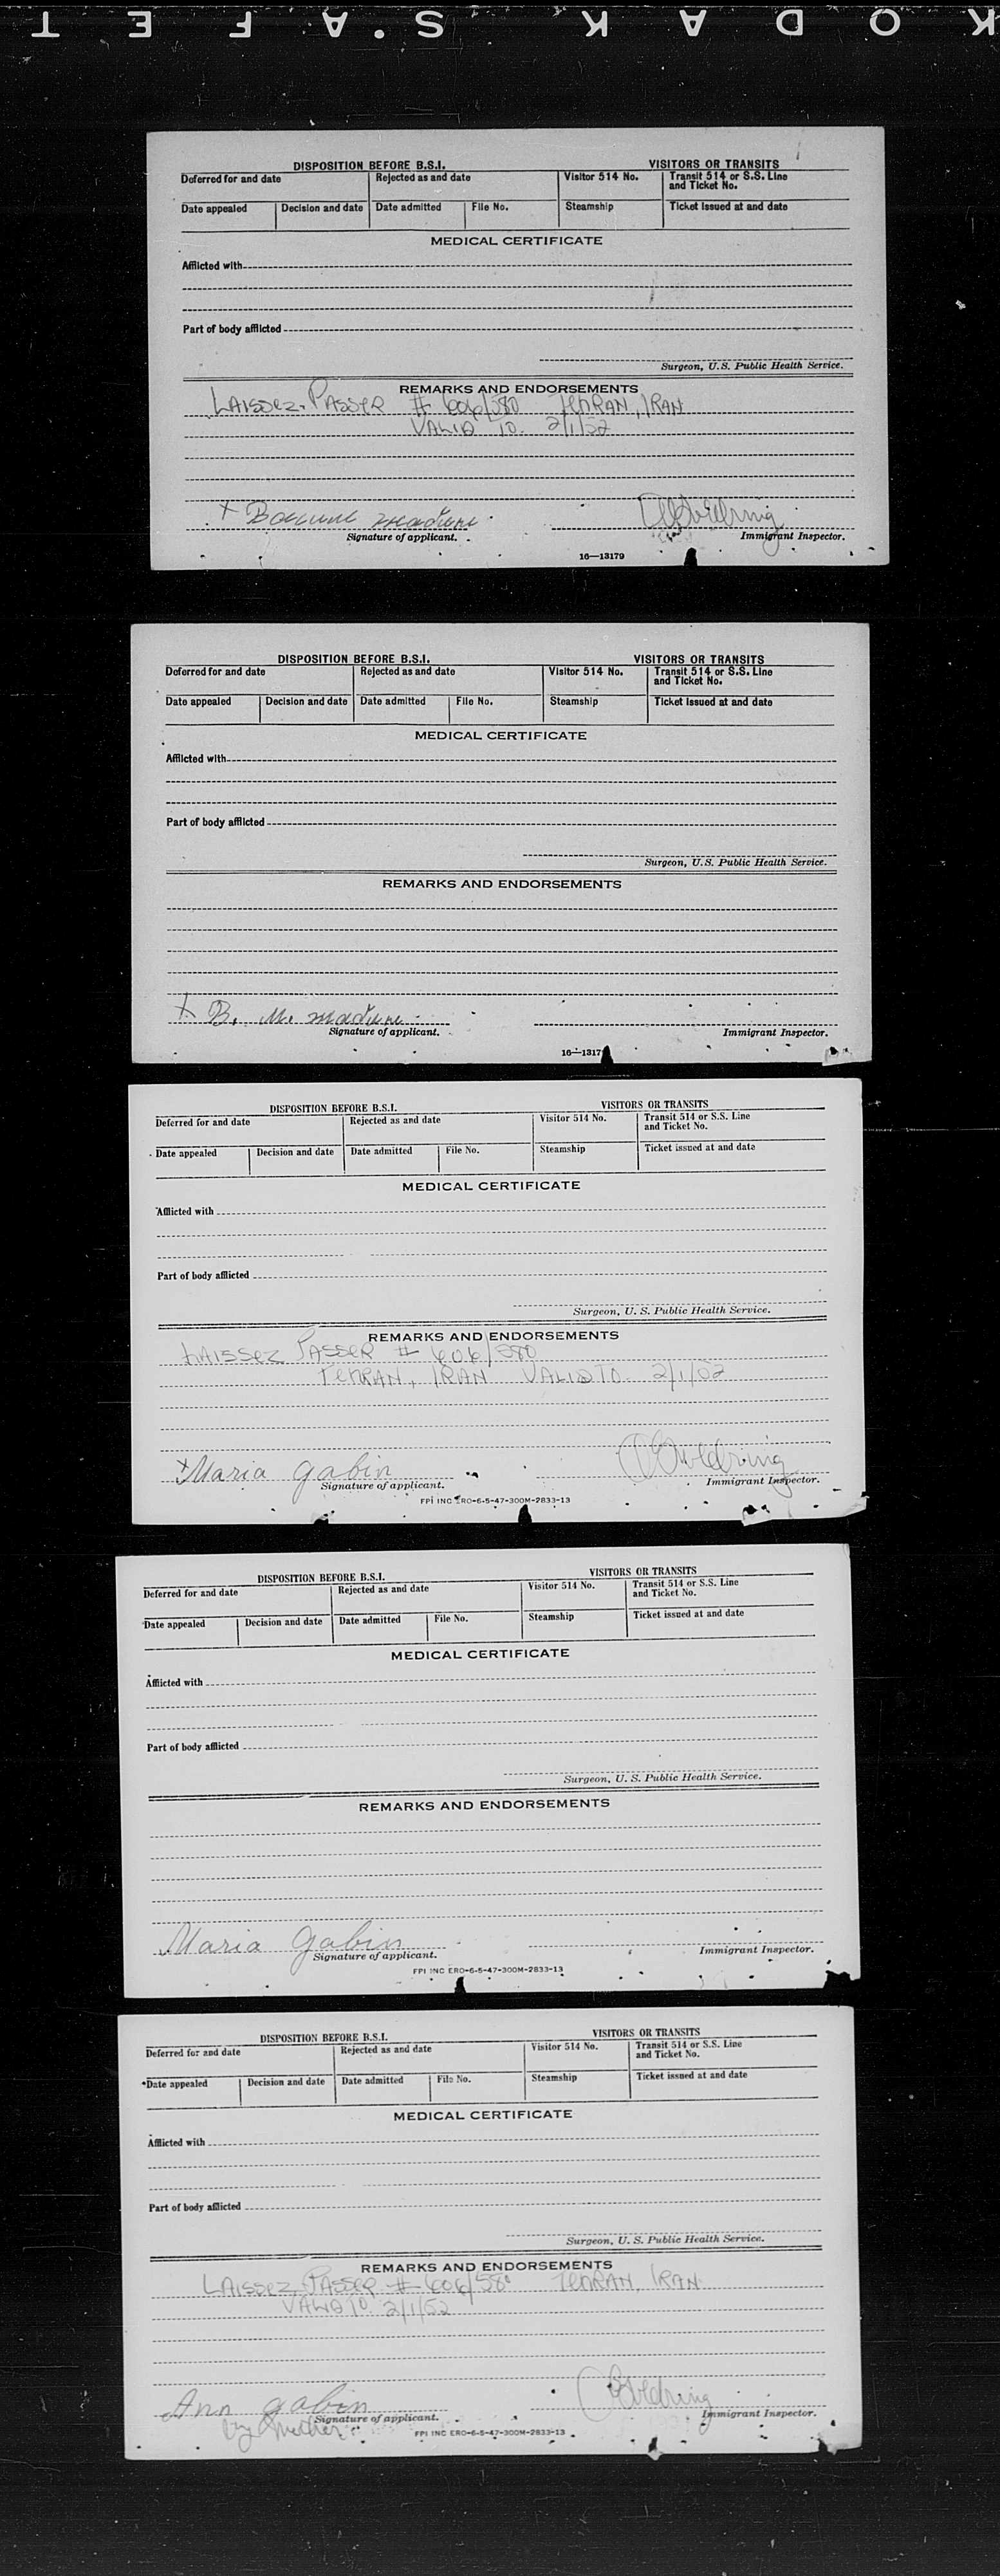 KODAK S.AFET
DISPOSITION BEFORE B.S.I. VISITORS OR TRANSITS
Deferred for and date Rejected as and date Visitor 514 No. Transit 514 or S.S. Line and Ticket No.
Date appealed Decision and date Date admitted File No. Steamship Ticket issued at and date
MEDICAL CERTIFICATE
Afflicted with
Part of body afflicted
Surgeon, U.S. Public Health Service.
REMARKS AND ENDORSEMENTS
LAISSEZ PASSER # 606/580 TEHRAN, IRAN
VALID TO. 2/1/52
X
Signature of applicant. Immigrant Inspector.
16—13179
DISPOSITION BEFORE B.S.I. VISITORS OR TRANSITS
Deferred for and date Rejected as and date Visitor 514 No. Transit 514 or S.S. Line and Ticket No.
Date appealed Decision and date Date admitted File No. Steamship Ticket issued at and date
MEDICAL CERTIFICATE
Afflicted with
Part of body afflicted
Surgeon, U.S. Public Health Service.
REMARKS AND ENDORSEMENTS
X B. M.
Signature of applicant. Immigrant Inspector.
16—1317
DISPOSITION BEFORE B.S.I. VISITORS OR TRANSITS
Deferred for and date Rejected as and date Visitor 514 No. Transit 514 or S.S. Line and Ticket No.
Date appealed Decision and date Date admitted File No. Steamship Ticket issued at and date
MEDICAL CERTIFICATE
Afflicted with
Part of body afflicted
Surgeon, U. S. Public Health Service.
REMARKS AND ENDORSEMENTS
LAISSEZ PASSER # 606/580
TEHRAN, IRAN VALID TO. 2/1/52
X Maria Gabin
Signature of applicant. Immigrant Inspector.
FPI INC ERO-6-5-47-300M-2833-13
DISPOSITION BEFORE B.S.I. VISITORS OR TRANSITS
Deferred for and date Rejected as and date Visitor 514 No. Transit 514 or S.S. Line and Ticket No.
Date appealed Decision and date Date admitted File No. Steamship Ticket issued at and date
MEDICAL CERTIFICATE
Afflicted with
Part of body afflicted
Surgeon, U. S. Public Health Service.
REMARKS AND ENDORSEMENTS
Maria Gabin
Signature of applicant. Immigrant Inspector.
FPI INC ERO-6-5-47-300M-2833-13
DISPOSITION BEFORE B.S.I. VISITORS OR TRANSITS
Deferred for and date Rejected as and date Visitor 514 No. Transit 514 or S.S. Line and Ticket No.
Date appealed Decision and date Date admitted File No. Steamship Ticket issued at and date
MEDICAL CERTIFICATE
Afflicted with
Part of body afflicted
Surgeon, U. S. Public Health Service.
REMARKS AND ENDORSEMENTS
LAISSEZ PASSER # 606/580 TEHRAN, IRAN
VALID TO. 2/1/52
Ann Gabin
Signature of applicant. Immigrant Inspector.
by mother
FPI INC ERO-6-5-47-300M-2833-13